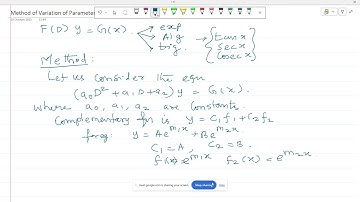 Method of Variation of Parameter
F(D) y = G(x). exp
Alg
trig. tanx
secx
cosecx
Method:
Let us consider the equn
(a₀D² + a₁D + a₂) y = G(x).
where a₀, a₁, a₂ are constants.
Complementary fn is y = C₁f₁ + C₂f₂
y = Ae^m₁x + Be^m₂x
C₁ = A, C₂ = B.
f₁(x) = e^m₁x f₂(x) = e^m₂x
Stop sharing